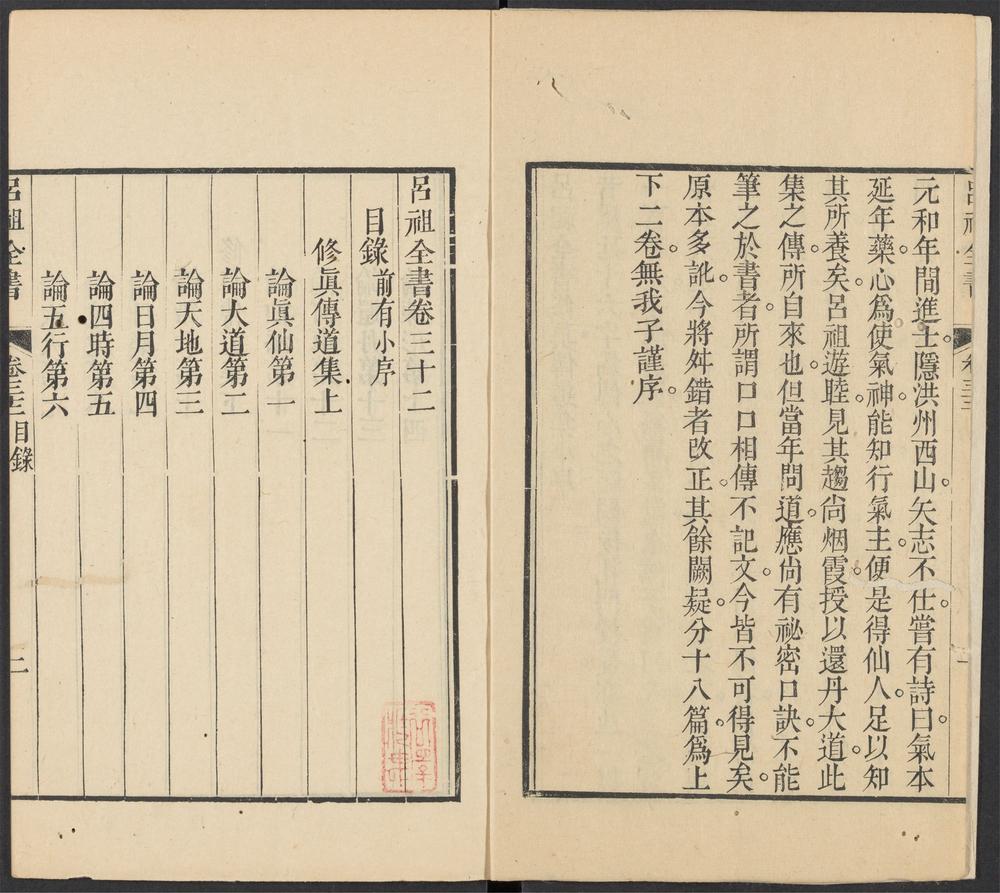 呂祖全書 卷三十二 一
元和年間進士。隱洪州西山。矢志不仕。嘗有詩曰。氣本
延年藥。心爲使氣神。能知行氣主。便是得仙人。足以知
其所養矣。呂祖遊睦。見其趨尚烟霞。授以還丹大道。此
集之傳。所自來也。但當年問道。應尚有祕密口訣。不能
筆之於書者。所謂口口相傳不記文。今皆不可得見矣。
原本多訛。今將舛錯者改正。其餘闕疑。分十八篇。爲上
下二卷。無我子謹序。
呂祖全書卷三十二
目錄 前有小序
修眞傳道集上
論眞仙第一
論大道第二
論天地第三
論日月第四
論四時第五
論五行第六
呂祖全書 卷三十二目錄 二